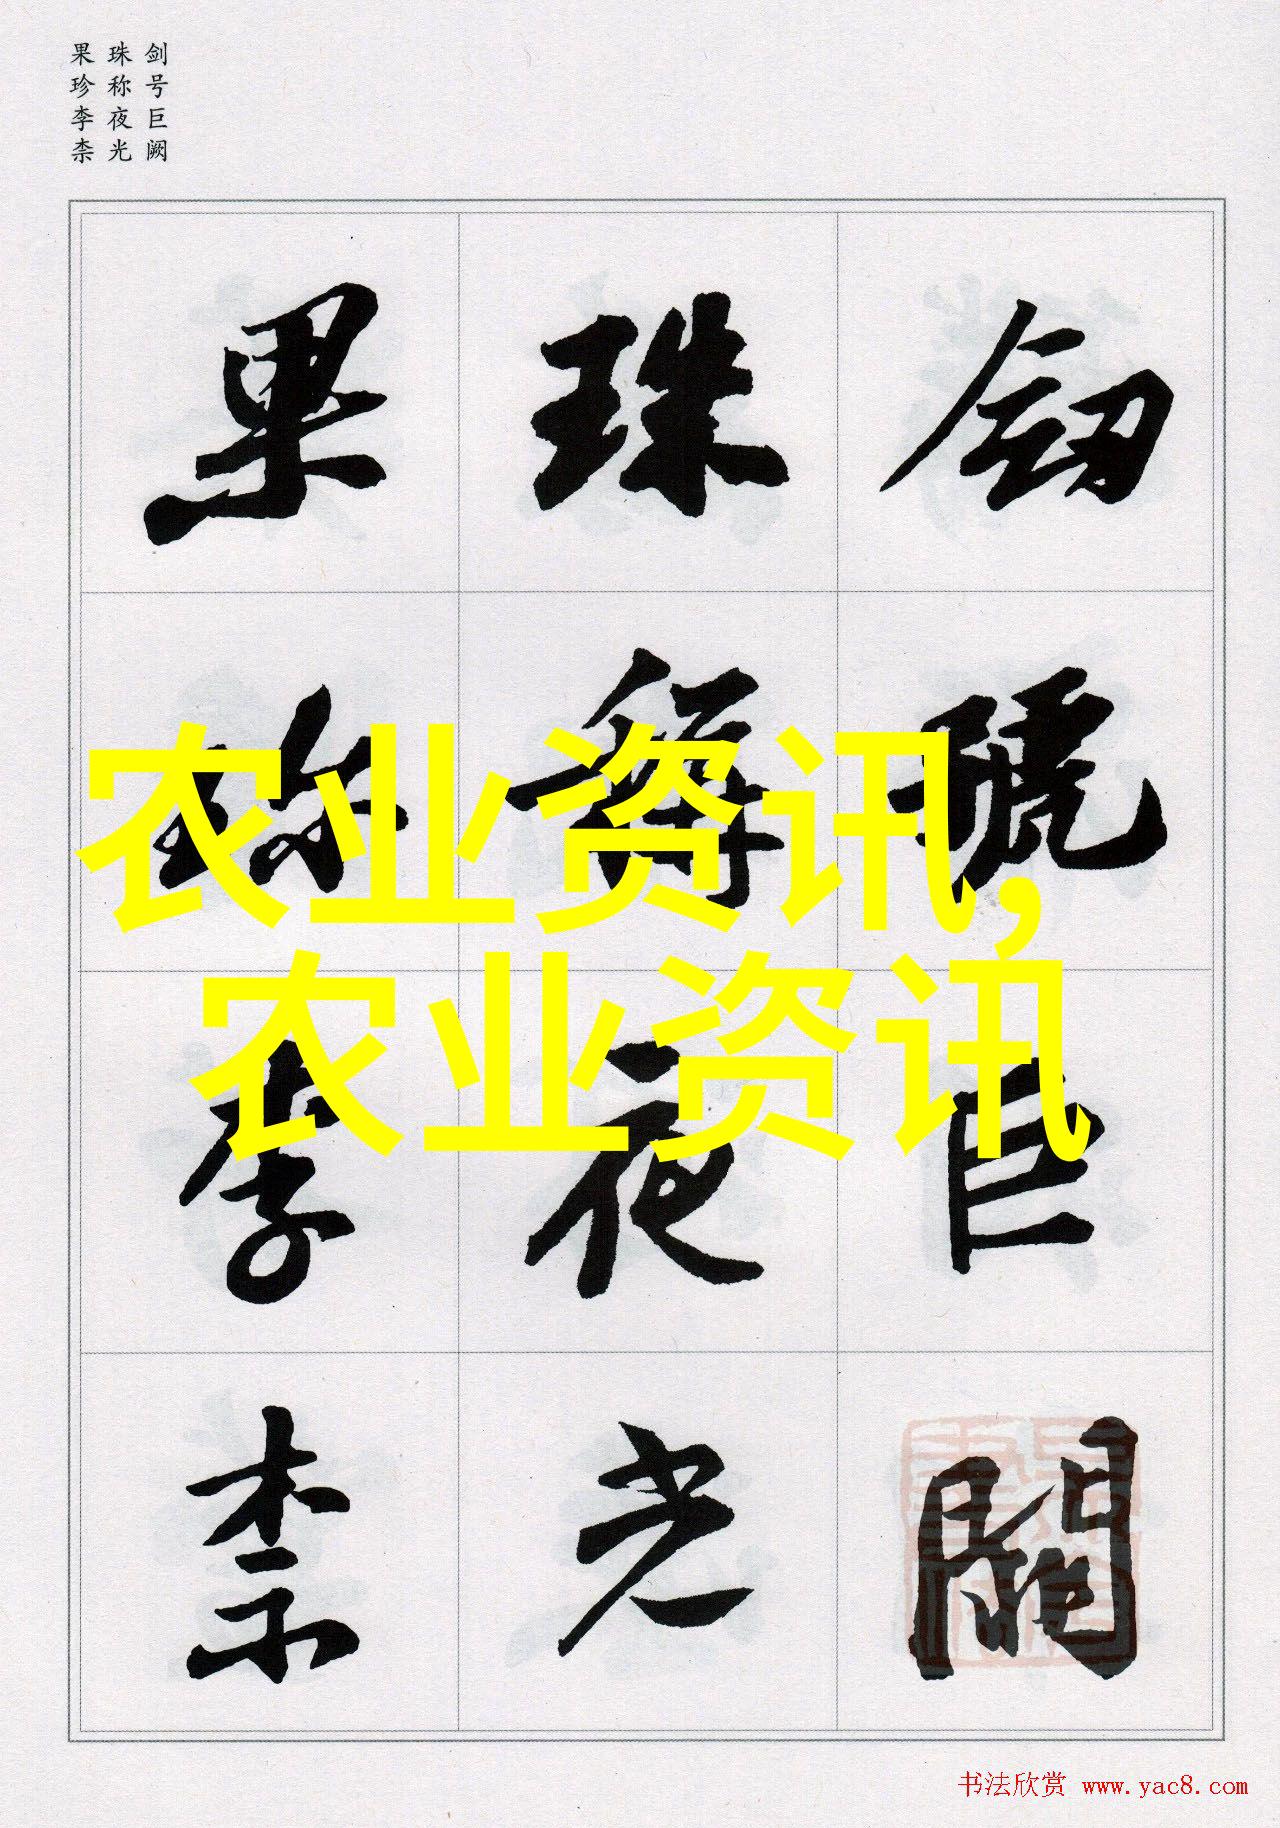 剑号巨阙
珠称夜光
果珍李柰
劒號巨闕
珠稱夜光
果珎李柰
农业资讯,
农业资讯
书法欣赏 www.yac8.com